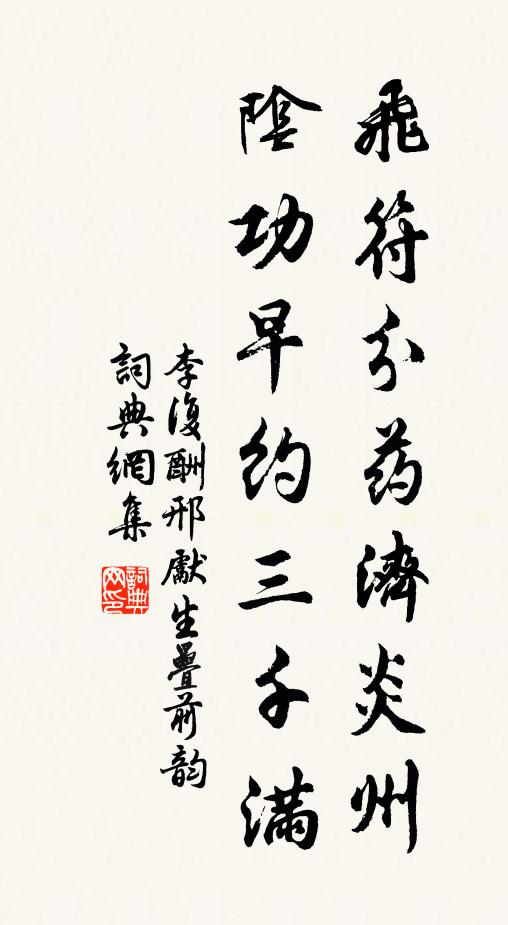 飛符分药濟炎州
陰功早约三千滿
李復酬邢獻生疊前韵
詞典網集
詞典
网印